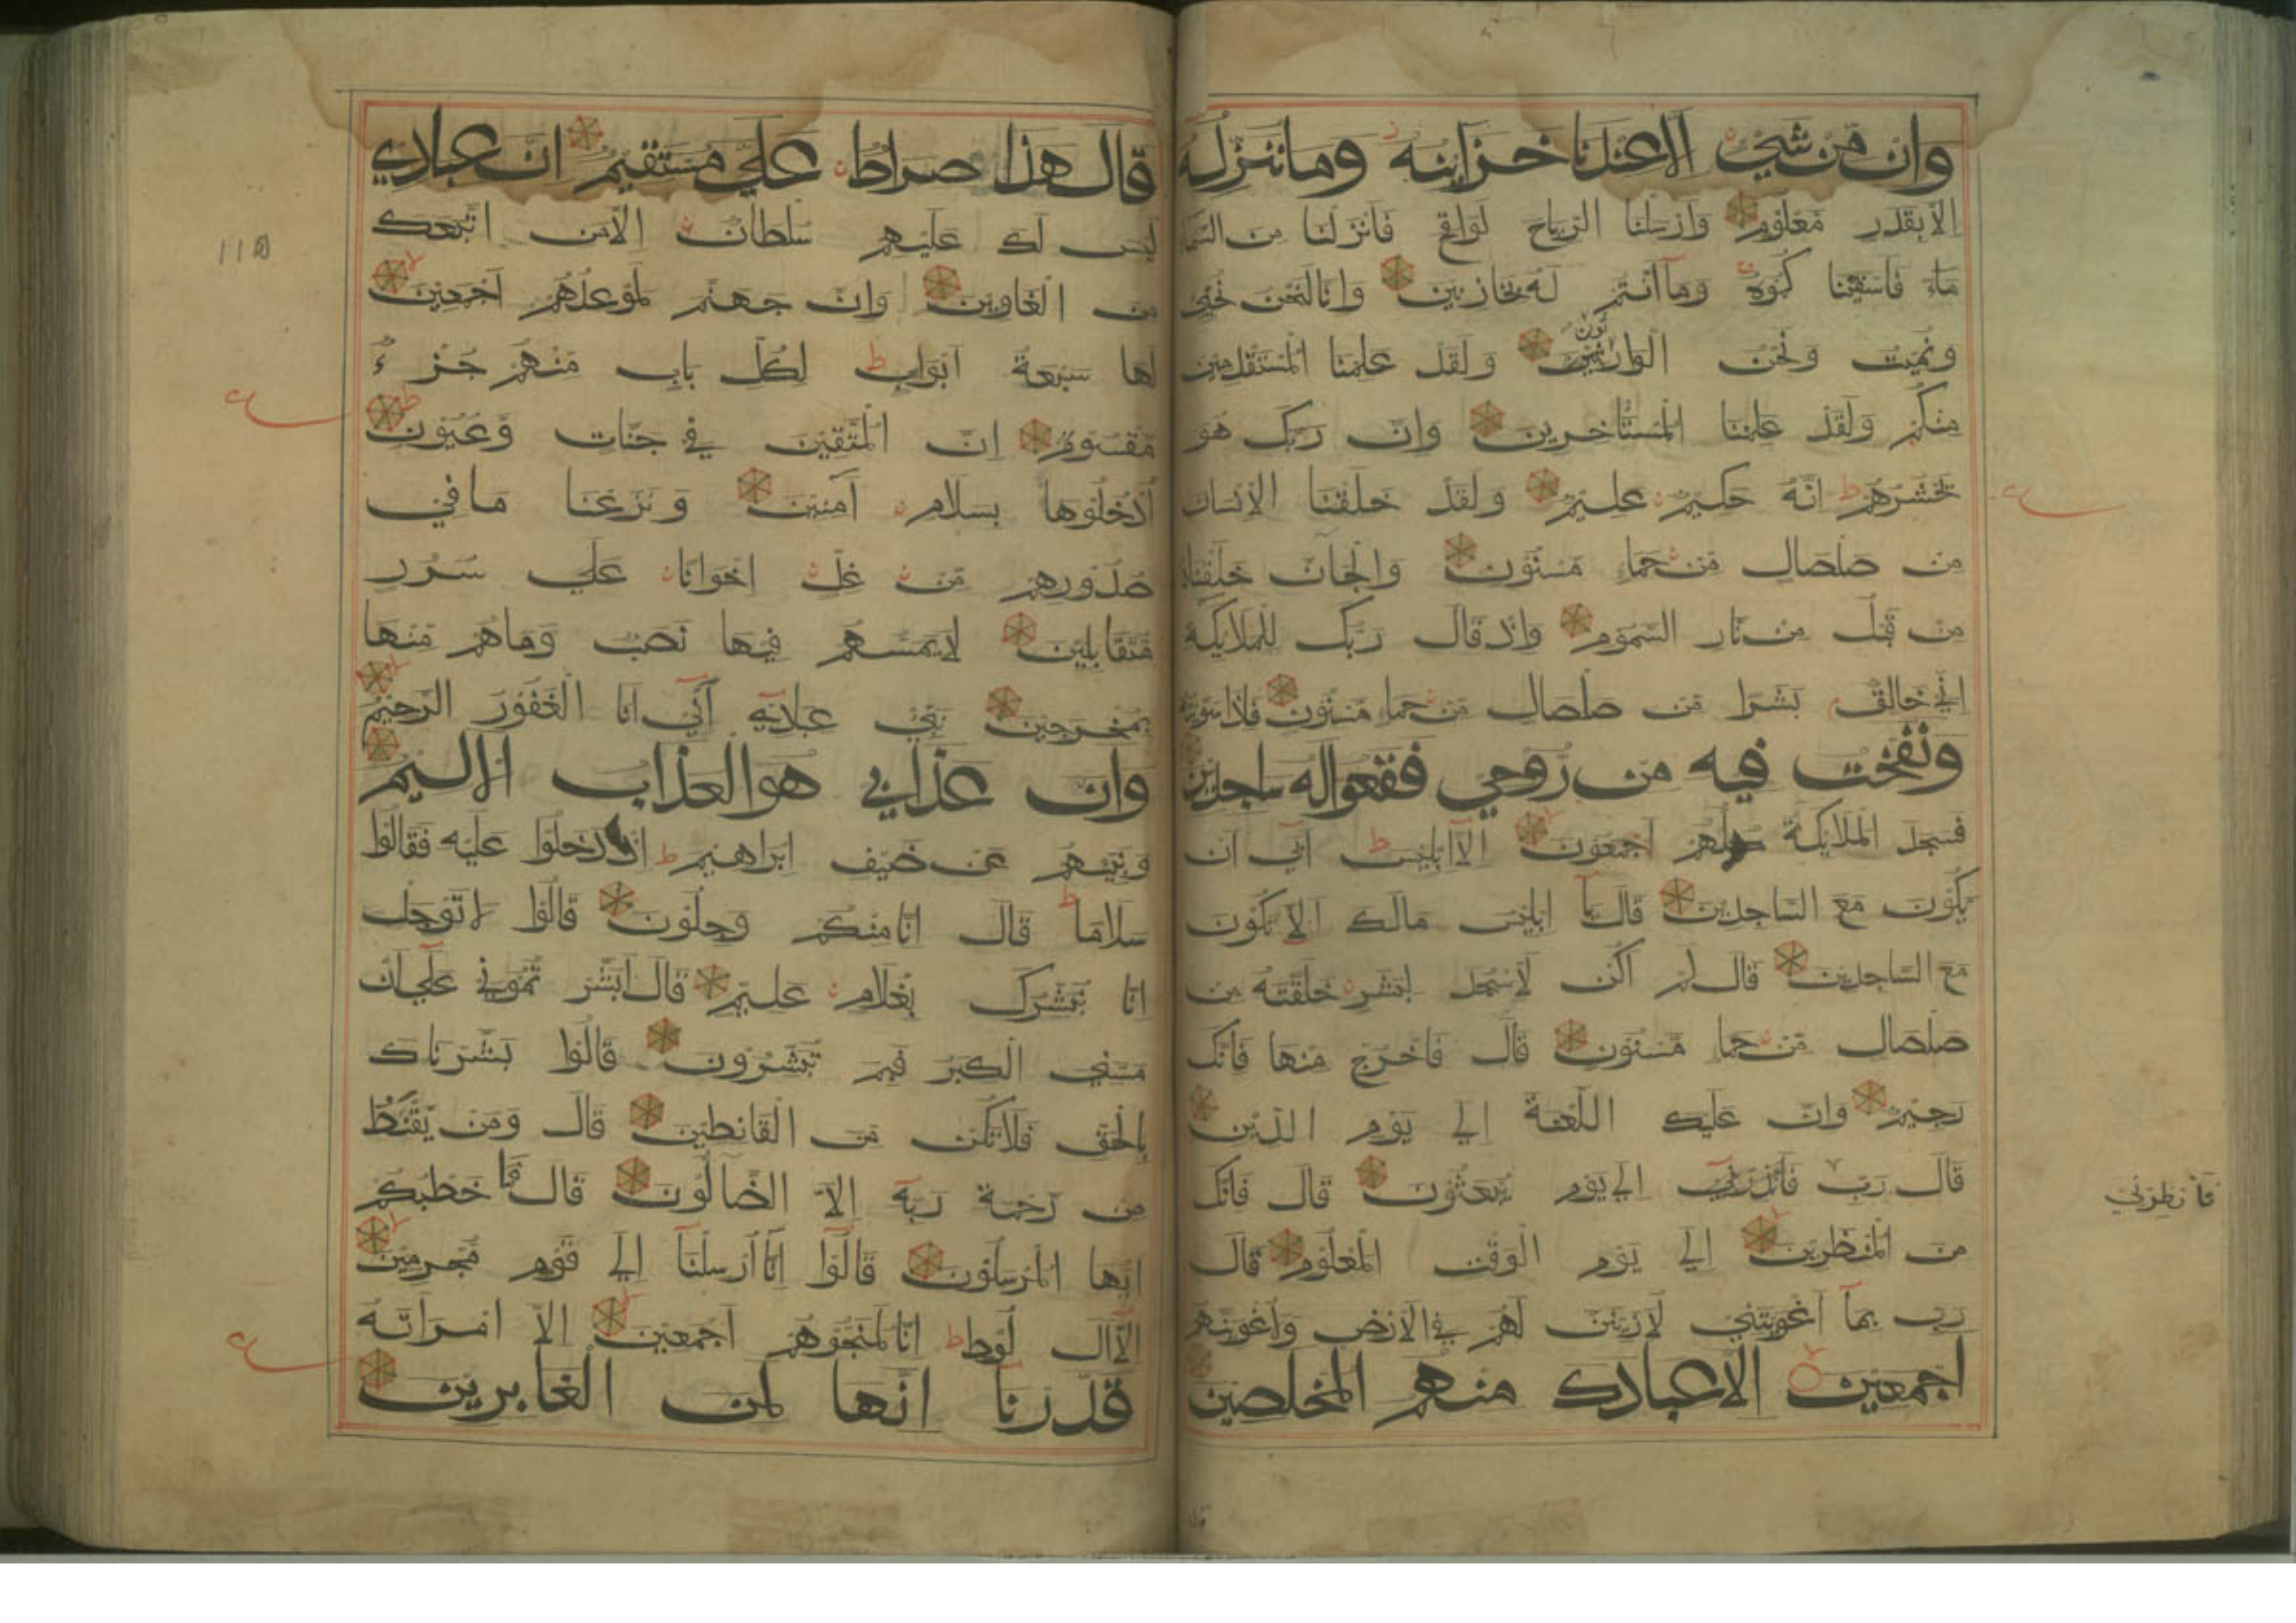 وان من شيء الا عندنا خزائنه وما ننزله
الا بقدر معلوم وارسلنا الرياح لواقح فانزلنا من السما
ماء فاسقيناكموه وما انتم له بخازنين وانا لنحن نحيي
ونميت ونحن الوارثون ولقد علمنا المستقدمين
منكم ولقد علمنا المستاخرين وان ربك هو
يحشرهم انه حكيم عليم ولقد خلقنا الانسان
من صلصال من حما مسنون والجان خلقناه
من قبل من نار السموم واذ قال ربك للملايكة
اني خالق بشرا من صلصال من حما مسنون فاذا سويته
ونفخت فيه من روحي فقعوا له ساجدين
فسجد الملايكة كلهم اجمعون الا ابليس ابي ان
يكون مع الساجدين قال يا ابليس مالك الا تكون
مع الساجدين قال لم اكن لاسجد لبشر خلقته من
صلصال من حما مسنون قال فاخرج منها فانك
رجيم وان عليك اللعنة الي يوم الدين
قال رب فانظرني الي يوم يبعثون قال فانك
من المنظرين الي يوم الوقت المعلوم قال
رب بما اغويتني لازينن لهم في الارض ولاغوينهم
اجمعين الا عبادك منهم المخلصين
فانظرني
قال هذا صراط علي مستقيم ان عبادي
ليس لك عليهم سلطان الا من اتبعك
من الغاوين وان جهنم لموعدهم اجمعين
لها سبعة ابواب لكل باب منهم جزء
مقسوم ان المتقين في جنات وعيون
ادخلوها بسلام آمنين ونزعنا ما في
صدورهم من غل اخوانا علي سرر
متقابلين لا يمسهم فيها نصب وما هم منها
بمخرجين نبي عبادي اني انا الغفور الرحيم
وان عذابي هو العذاب الاليم
ونبيهم عن ضيف ابراهيم اذ دخلوا عليه فقالوا
سلاما قال انا منكم وجلون قالوا لا توجل
انا نبشرك بغلام عليم قال ابشرتموني علي ان
مسني الكبر فبم تبشرون قالوا بشرناك
بالحق فلا تكن من القانطين قال ومن يقنط
من رحمة ربه الا الضالون قال فما خطبكم
ايها المرسلون قالوا انا ارسلنا الي قوم مجرمين
الا آل لوط انا لمنجوهم اجمعين الا امراته
قدرنا انها لمن الغابرين